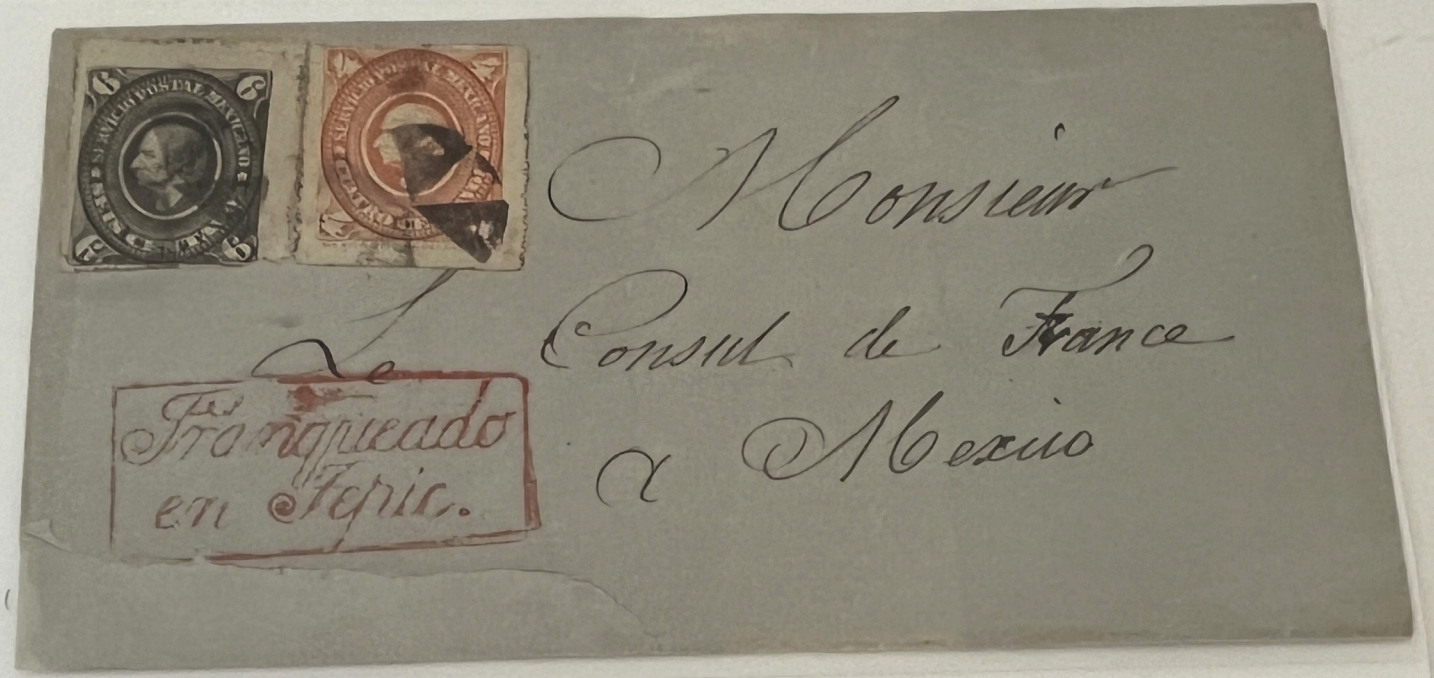 6 6
SERVICIO POSTAL MEXICANO
SEIS CENTAVOS
6 6
4 4
SERVICIO POSTAL MEXICANO
CUATRO
4
Monsieur
Le Consul de France
a Mexico
Franqueado
en Tepic.